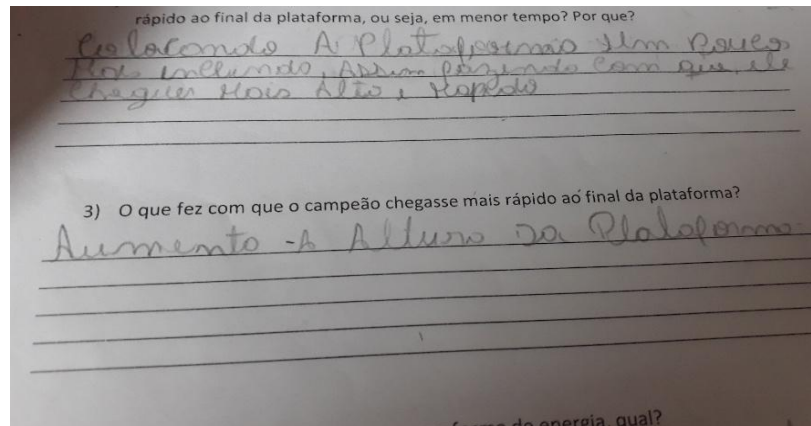 rápido ao final da plataforma, ou seja, em menor tempo? Por que?
Colocando A Plataforma Um Pouco
Mais inclinado, Assim fazendo Com que ele
Chegue Mais Alto e Rapido
3) O que fez com que o campeão chegasse mais rápido ao final da plataforma?
Aumento -A Altura Da Plataforma.
de energia, qual?